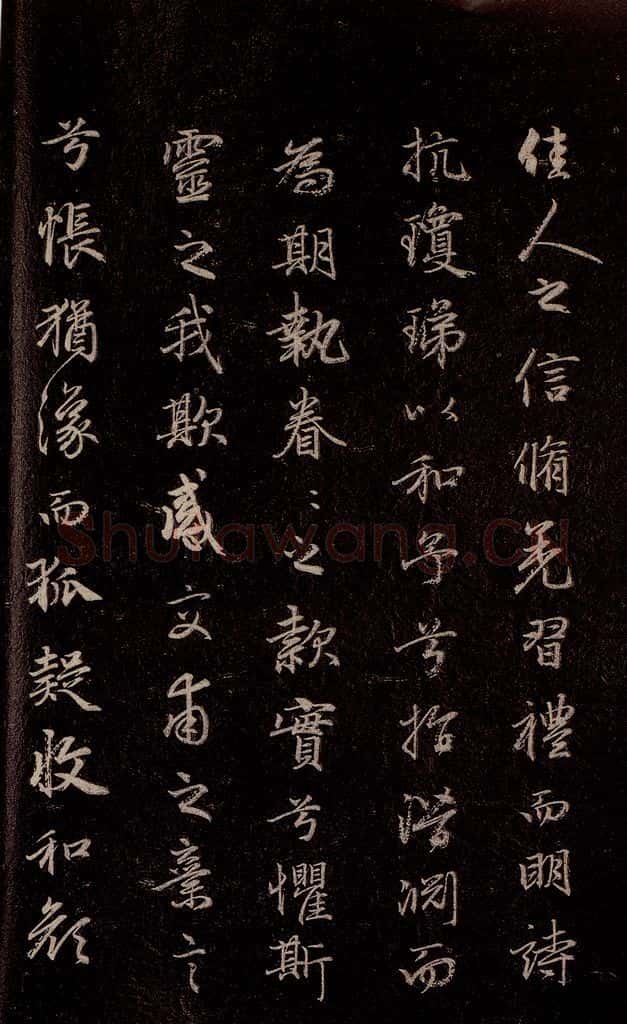 佳人之信脩羌習禮而明詩
抗瓊珶以和予兮指潛淵而
為期執眷〻之款實兮懼斯
靈之我欺感交甫之棄言
兮悵猶豫而狐疑收和顏
Shufawang.cn